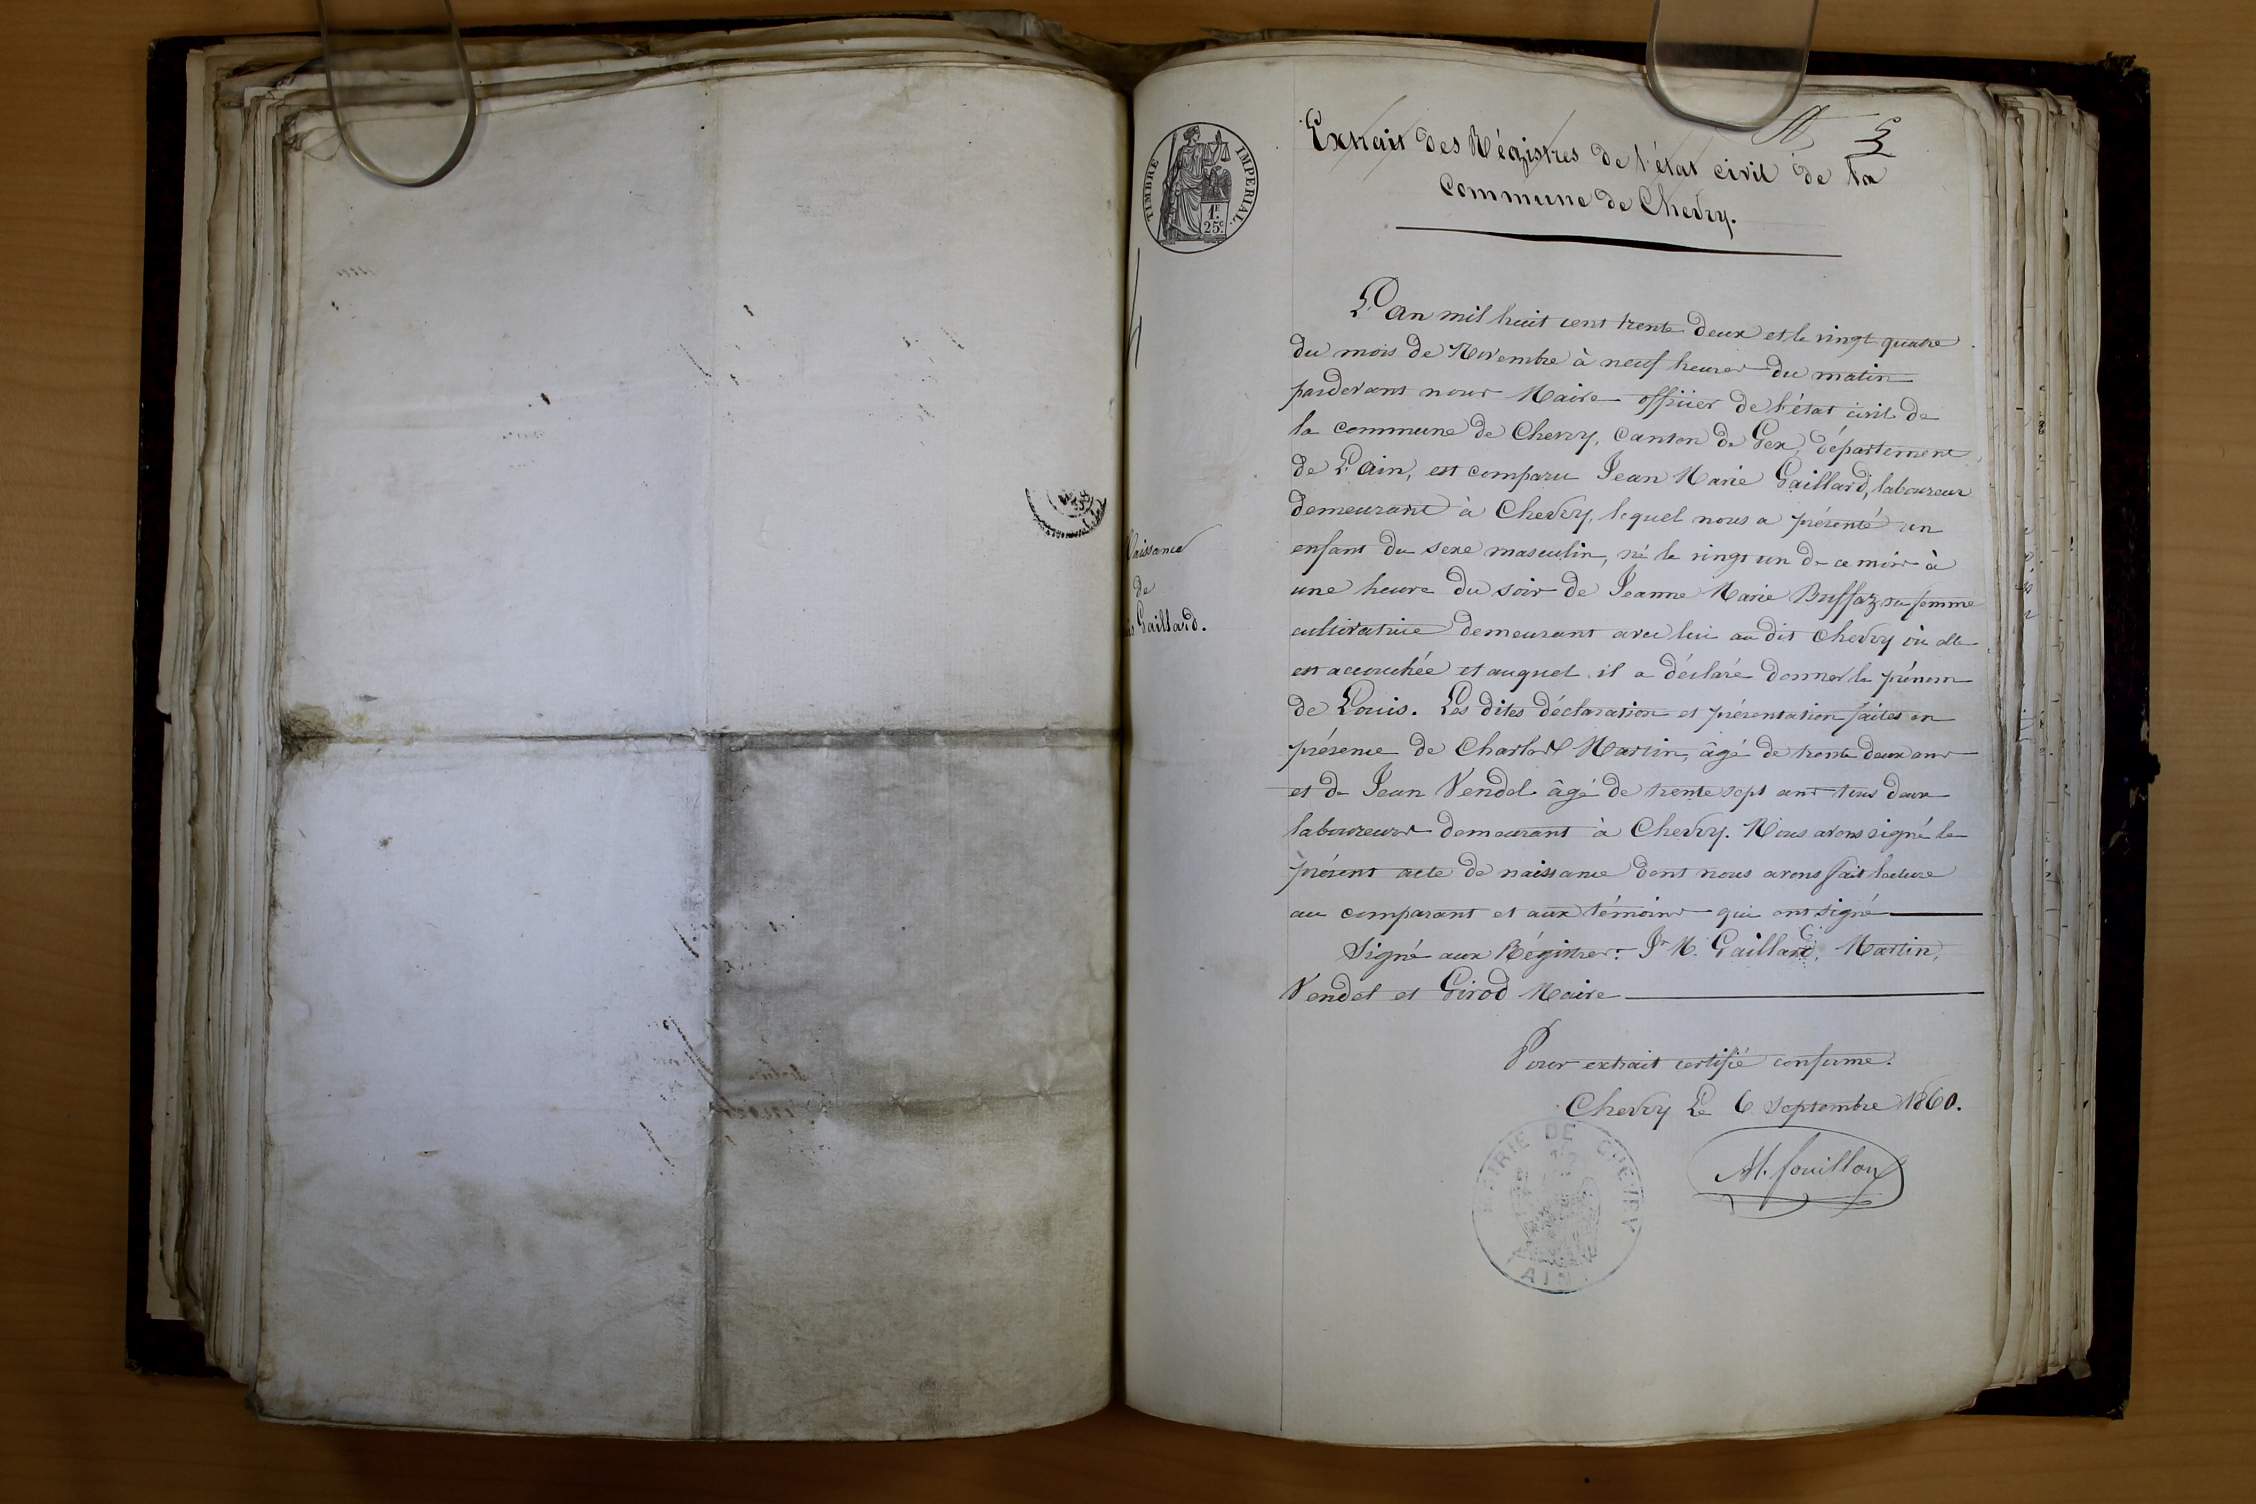 TIMBRE IMPERIAL.
1F.
25c.
Extrait des Régistres de l'état civil de la
Commune de Chevry.
Naissance
de
Gaillard.
L'an mil huit cent trente deux et le vingt quatre
du mois de Novembre à neuf heures du matin
pardevant nous Maire officier de l'état civil de
la commune de Chevry, Canton de Gex, département
de L'ain, est comparu Jean Marie Gaillard, laboureur
demeurant à Chevry, lequel nous a présenté un
enfant du sexe masculin, né le vingt un de ce mois à
une heure du soir de Jeanne Marie Buffaz sa femme
cultivatrice demeurant avec lui au dit Chevry où elle
est accouchée et auquel il a déclaré donner le prénom
de Louis. Les dites déclaration et présentation faites en
présence de Charles Martin, âgé de trente deux ans
et de Jean Vendel âgé de trente sept ans tous deux
laboureurs demeurant à Chevry. Nous avons signé le
présent acte de naissance dont nous avons fait lecture
au comparant et aux témoins qui ont signé
Signé aux Régistres: Jn M. Gaillard, Martin,
Vendel et Girod Maire
Pour extrait certifié conforme.
Chevry Le 6 Septembre 1860.
M. fouillou
MAIRIE DE CHEVRY
AIN